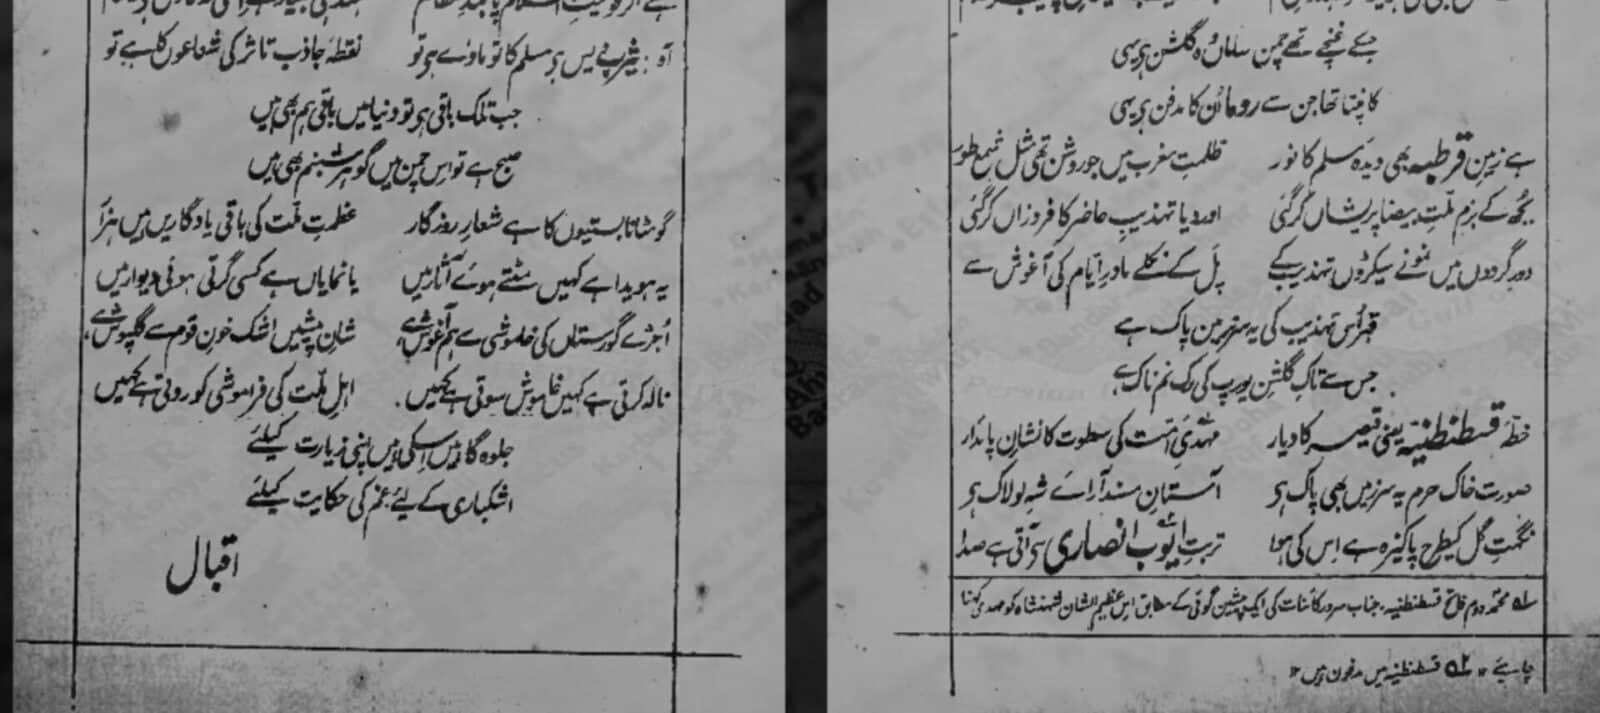 جسکے غنچے تھے چمن ساماں وہ گلشن ہو یہی
کانپتا تھا جن سے روما اُن کا مدفن ہو یہی
ہے زمینِ قرطبہ بھی دیدۂ مسلم کا نور ظلمتِ مغرب میں جو روشن تھی مثل شمع طور
بجھ کے بزم ملّتِ بیضا پریشاں کر گئی اور دیا تہذیبِ حاضر کا فروزاں کر گئی
دور گردوں میں نمونے سیکڑوں تہذیب کے پل کے نکلے مادرِ ایّام کی آغوش سے
قبر اُس تہذیب کی یہ سرزمین پاک ہے
جس سے تاکِ گلشنِ یورپ کی رگ نم ناک ہے
خطّۂ قسطنطنیہ یعنی قیصر کا دیار مہدیِ امّت کی سطوت کا نشانِ پائدار
صورت خاک حرم یہ سرزمیں بھی پاک ہو آستانِ مسند آرائے شہِ لولاک ہو
نگہتِ گل کیطرح پاکیزہ ہے اِس کی ہوا تربتِ ایّوب انصاری سے آتی ہے صدا
۱؎ محمّد دوم فاتح قسطنطنیہ، جناب سرور کائنات کی ایک پیشین گوئی کے مطابق اس عظیم الشان شہنشاہ کو مہدی کہنا
چاہیئے ۱۲ ۲؎ قسطنطنیہ میں مدفون ہیں ۱۲
آہ! یثرب دیس ہو مسلم کا تو ماوےٰ ہو تو نقطۂ جاذب تاثر کی شعاعوں کا ہے تو
جب تلک باقی ہو تو دنیا میں باقی ہم بھی ہیں
صبح ہے تو اِس چمن میں گوہرِ شبنم بھی ہیں
گو مٹانا بستیوں کا ہے شعارِ روزگار عظمتِ ملّت کی باقی یادگاریں ہیں ہزار
یہ ہویدا ہے کہیں مٹتے ہوئے آثار میں یا نمایاں ہے کسی گرتی ہوئی دیوار میں
اُجڑے گورستاں کی خاموشی سے ہم آغوش ہے شانِ پیشیں اشک خونِ قوم سے گلپوش ہے
نالہ کرتی ہے کہیں خاموش سوتی ہے کہیں اہلِ ملّت کی فراموشی کو روتی ہے کہیں
جلوہ گاہیں اسکی ہیں اپنی زیارت کیلئے
اشکباری کے لیئے غم کی حکایت کیلئے
اقبال